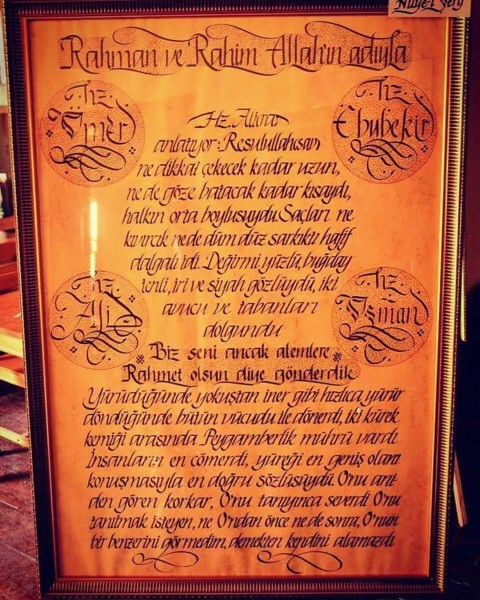 Hilye-i Şerif
Rahman ve Rahim Allah'ın adıyla
Hz.
Ömer
Hz.
Ebubekir
Hz. Ali
anlatıyor: Resulullah sav
ne dikkat çekecek kadar uzun,
ne de göze batacak kadar kısaydı,
halkın orta boylusuydu. Saçları ne
kıvırcık ne de düm düz sarkıktı hafif
dalgalı idi. Değirmi yüzlü, buğday
tenli, iri ve siyah gözlüydü, iki
avucu ve tabanları
dolgundu
Hz.
Ali
Hz.
Osman
Biz seni ancak alemlere
Rahmet olsun diye gönderdik
Yürüdüğünde yokuştan iner gibi hızlıca yürür
döndüğünde bütün vücudu ile dönerdi, iki kürek
kemiği arasında Peygamberlik mührü vardı.
İnsanların en cömerdi, yüreği en geniş olanı
konuşmasıyla en doğru sözlüsüydü. Onu ani
den gören korkar, O'nu tanıyınca severdi O'nu
tanıtmak isteyen, ne O'ndan önce ne de sonra, O'nun
bir benzerini görmedim, demekten kendini alamazdı.